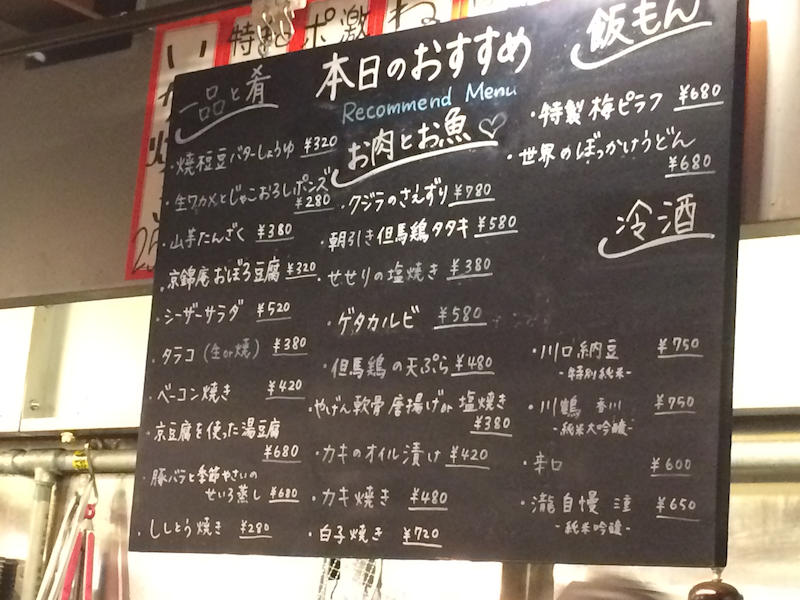 本日のおすすめ
Recommend Menu
一品と肴
・焼枝豆バターしょうゆ ¥320
・生ワカメとじゃこおろしポンズ
¥280
・山芋たんざく ¥380
・京錦庵おぼろ豆腐 ¥320
・シーザーサラダ ¥520
・タラコ(生or焼) ¥380
・ベーコン焼き ¥420
・京豆腐を使った湯豆腐
¥680
・豚バラと季節やさいの
せいろ蒸し ¥680
・ししとう焼き ¥280
お肉とお魚♡
・クジラのさえずり ¥780
・朝引き但馬鶏タタキ ¥580
・せせりの塩焼き ¥380
・ゲタカルビ ¥580
・但馬鶏の天ぷら ¥480
・やげん軟骨唐揚げor塩焼き
¥380
・カキのオイル漬け ¥420
・カキ焼き ¥480
・白子焼き ¥720
飯もん
・特製梅ピラフ ¥680
・世界のぼっかけうどん
¥680
冷酒
・川口納豆 ¥750
-特別純米-
・川鶴 香川 ¥750
-純米大吟醸-
・辛口 ¥600
・瀧自慢 ¥650
-純米吟醸-
特
ポ激